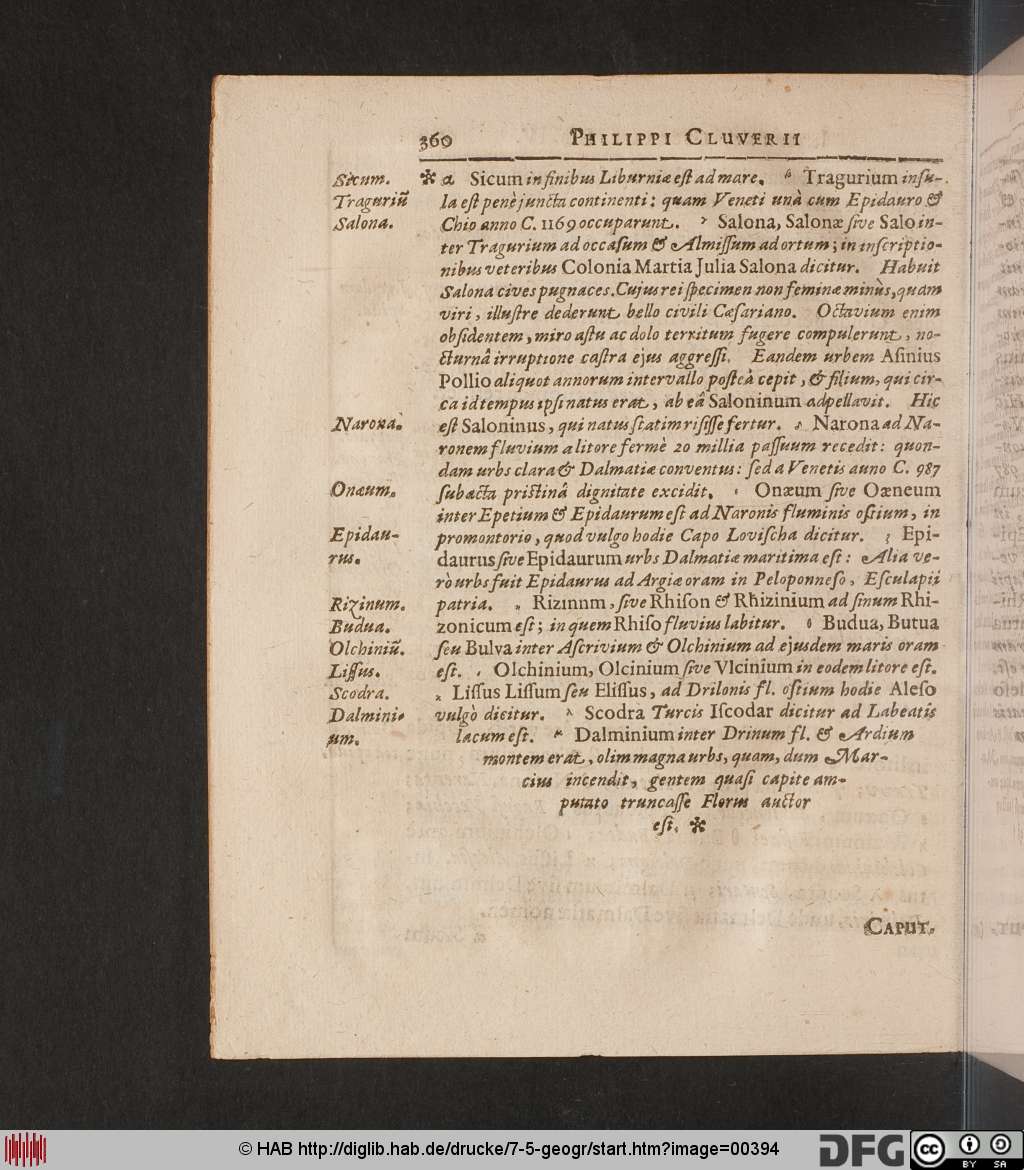 360 PHILIPPI CLUVERII
Sicum. * a Sicum in finibus Liburniæ est ad mare. β Tragurium insu-
Traguriũ la est penè juncta continenti: quam Veneti unà cum Epidauro &
Salona. Chio anno C. 1169 occuparunt. γ Salona, Salonæ sive Salo in-
ter Tragurium ad occasum & Almissum ad ortum; in inscriptio-
nibus veteribus Colonia Martia Julia Salona dicitur. Habuit
Salona cives pugnaces. Cujus rei specimen non feminæ minùs, quam
viri, illustre dederunt bello civili Cæsariano. Octavium enim
obsidentem, miro astu ac dolo territum fugere compulerunt, no-
cturnâ irruptione castra ejus aggressi. Eandem urbem Asinius
Pollio aliquot annorum intervallo posteà cepit, & filium, qui cir-
ca id tempus ipsi natus erat, ab eâ Saloninum adpellavit. Hic
Narona. est Saloninus, qui natus statim risisse fertur. δ Narona ad Na-
ronem fluvium a litore fermè 20 millia passuum recedit: quon-
dam urbs clara & Dalmatiæ conventus: sed a Venetis anno C. 987
Onæum. subacta pristinâ dignitate excidit. ε Onæum sive Oæneum
inter Epetium & Epidaurum est ad Naronis fluminis ostium, in
Epidau- promontorio, quod vulgo hodie Capo Lovischa dicitur. ζ Epi-
rus. daurus sive Epidaurum urbs Dalmatiæ maritima est: Alia ve-
rò urbs fuit Epidaurus ad Argiæ oram in Peloponneso, Esculapii
Rizinum. patria. η Rizinnm, sive Rhison & Rhizinium ad sinum Rhi-
Budua. zonicum est; in quem Rhiso fluvius labitur. θ Budua, Butua
Olchiniũ. seu Bulva inter Ascrivium & Olchinium ad ejusdem maris oram
Lissus. est. ι Olchinium, Olcinium sive Vlcinium in eodem litore est.
Scodra. κ Lissus Lissum seu Elissus, ad Drilonis fl. ostium hodie Aleso
Dalmini- vulgò dicitur. λ Scodra Turcis Iscodar dicitur ad Labeatis
um. lacum est. μ Dalminium inter Drinum fl. & Ardium
montem erat, olim magna urbs, quam, dum Mar-
cius incendit, gentem quasi capite am-
putato truncasse Florus auctor
est. *
CAPUT.
© HAB http://diglib.hab.de/drucke/7-5-geogr/start.htm?image=00394
DFG
cc BY SA